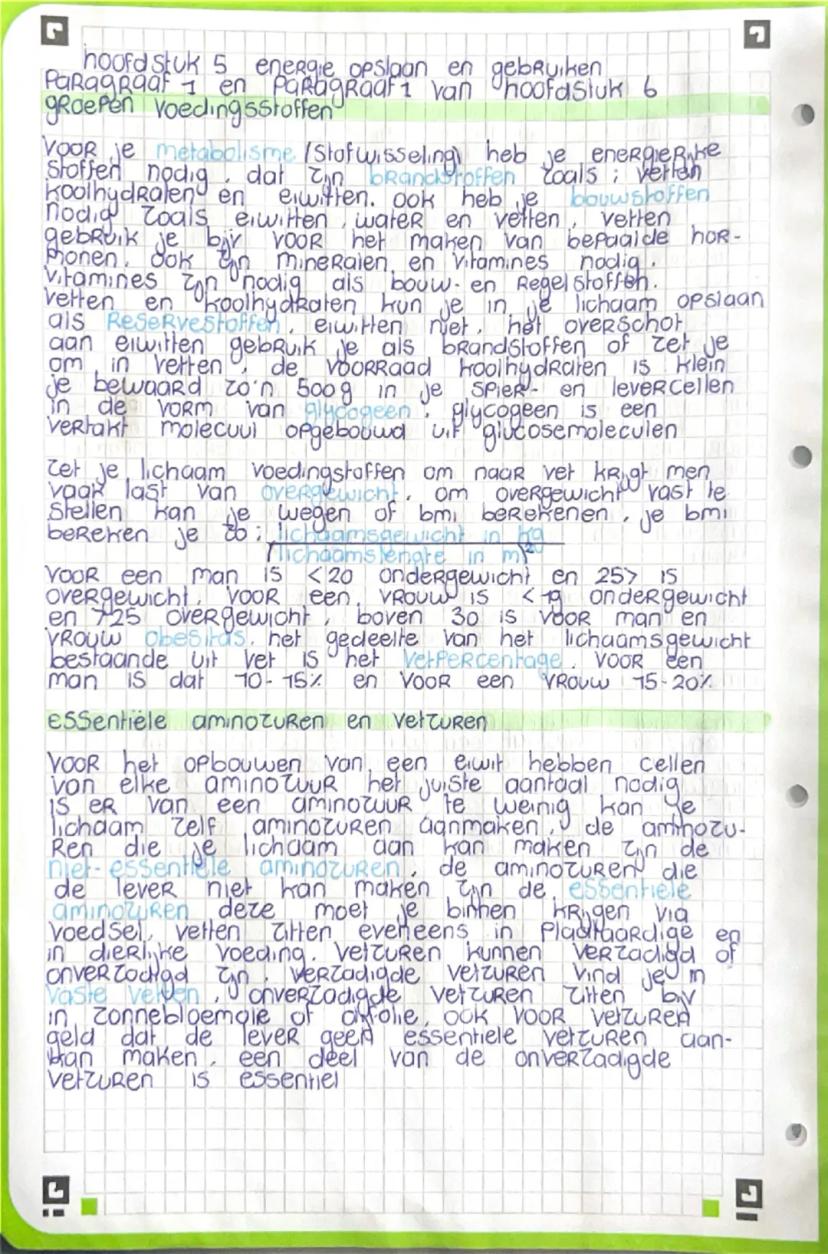 hoofdstuk 5 energie opslaan en gebruiken
Paragraaf 1 en Paragraaf 1 van hoofdstuk 6
groepen voedingsstoffen
voor je metabolisme (Stofwisseling) heb je energierijke
stoffen nodig, dat zijn brandstoffen zoals; vetten
koolhydraten en eiwitten. ook heb je bouwstoffen
nodig zoals eiwitten, water en vetten, vetten
gebruik je bijv voor het maken van bepaalde hor-
monen. ook zijn mineralen en vitamines nodig.
vitamines zijn nodig als bouw- en Regelstoffen.
vetten en koolhydraten kun je in je lichaam opslaan
als Reservestoffen, eiwitten niet, het overschot
aan eiwitten gebruik je als brandstoffen of zet je
om in vetten, de voorraad koolhydraten is klein
je bewaard zo'n 500g in je spier- en levercellen
in de vorm van glycogeen, glycogeen is een
vertakt molecuul opgebouwd uit glucosemoleculen
zet je lichaam voedingstoffen om naar vet krijgt men
vaak last van overgewicht, om overgewicht vast te
stellen kan je wegen of bmi berekenen, je bmi
bereken je zo; lichaamsgewicht in kg
(lichaamslengte in m)²
voor een man is <20 ondergewicht en 25> is
overgewicht, voor een vrouw is <19 ondergewicht
en >25 overgewicht, boven 30 is voor man en
vrouw obesitas, het gedeelte van het lichaamsgewicht
bestaande uit vet is het vetpercentage, voor een
man is dat 10-15% en voor een vrouw 15-20%
essentiële aminozuren en vetzuren
voor het opbouwen van een eiwit hebben cellen
van elke aminozuur het juiste aantal nodig
is er van een aminozuur te weinig kan je
lichaam zelf aminozuren aanmaken, de aminozu-
ren die je lichaam aan kan maken zijn de
niet-essentiele aminozuren, de aminozuren die
de lever niet kan maken zijn de essentiele
aminozuren deze moet je binnen krijgen via
voedsel, vetten zitten eveneens in plantaardige en
in dierlijke voeding. vetzuren kunnen verzadigd of
onverzadigd zijn, verzadigde vetzuren vind je in
vaste vetten, onverzadigde vetzuren zitten bijv
in zonnebloemolie of olijfolie, ook voor vetzuren
geld dat de lever geen essentiele vetzuren aan-
kan maken, een deel van de onverzadigde
vetzuren is essentiel